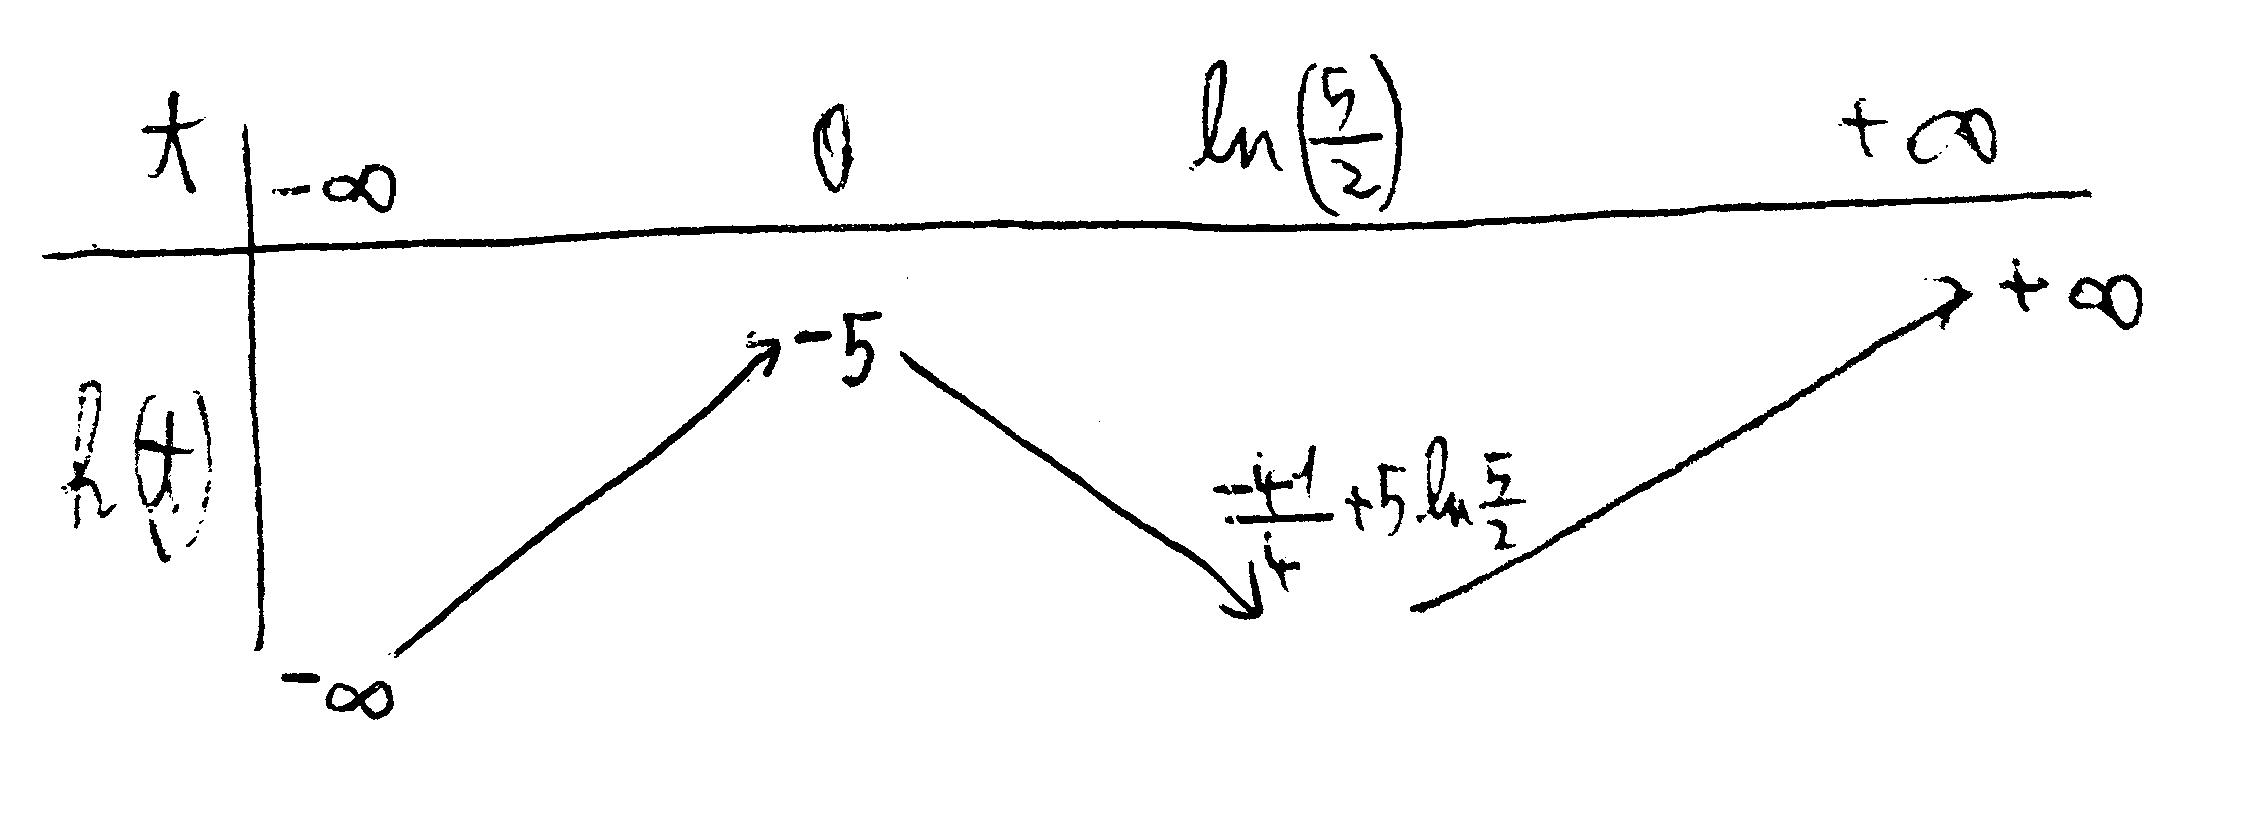 t -∞ 0 ln(5/2) +∞
h(t) -∞ -5 -41/4 + 5 ln 5/2 +∞